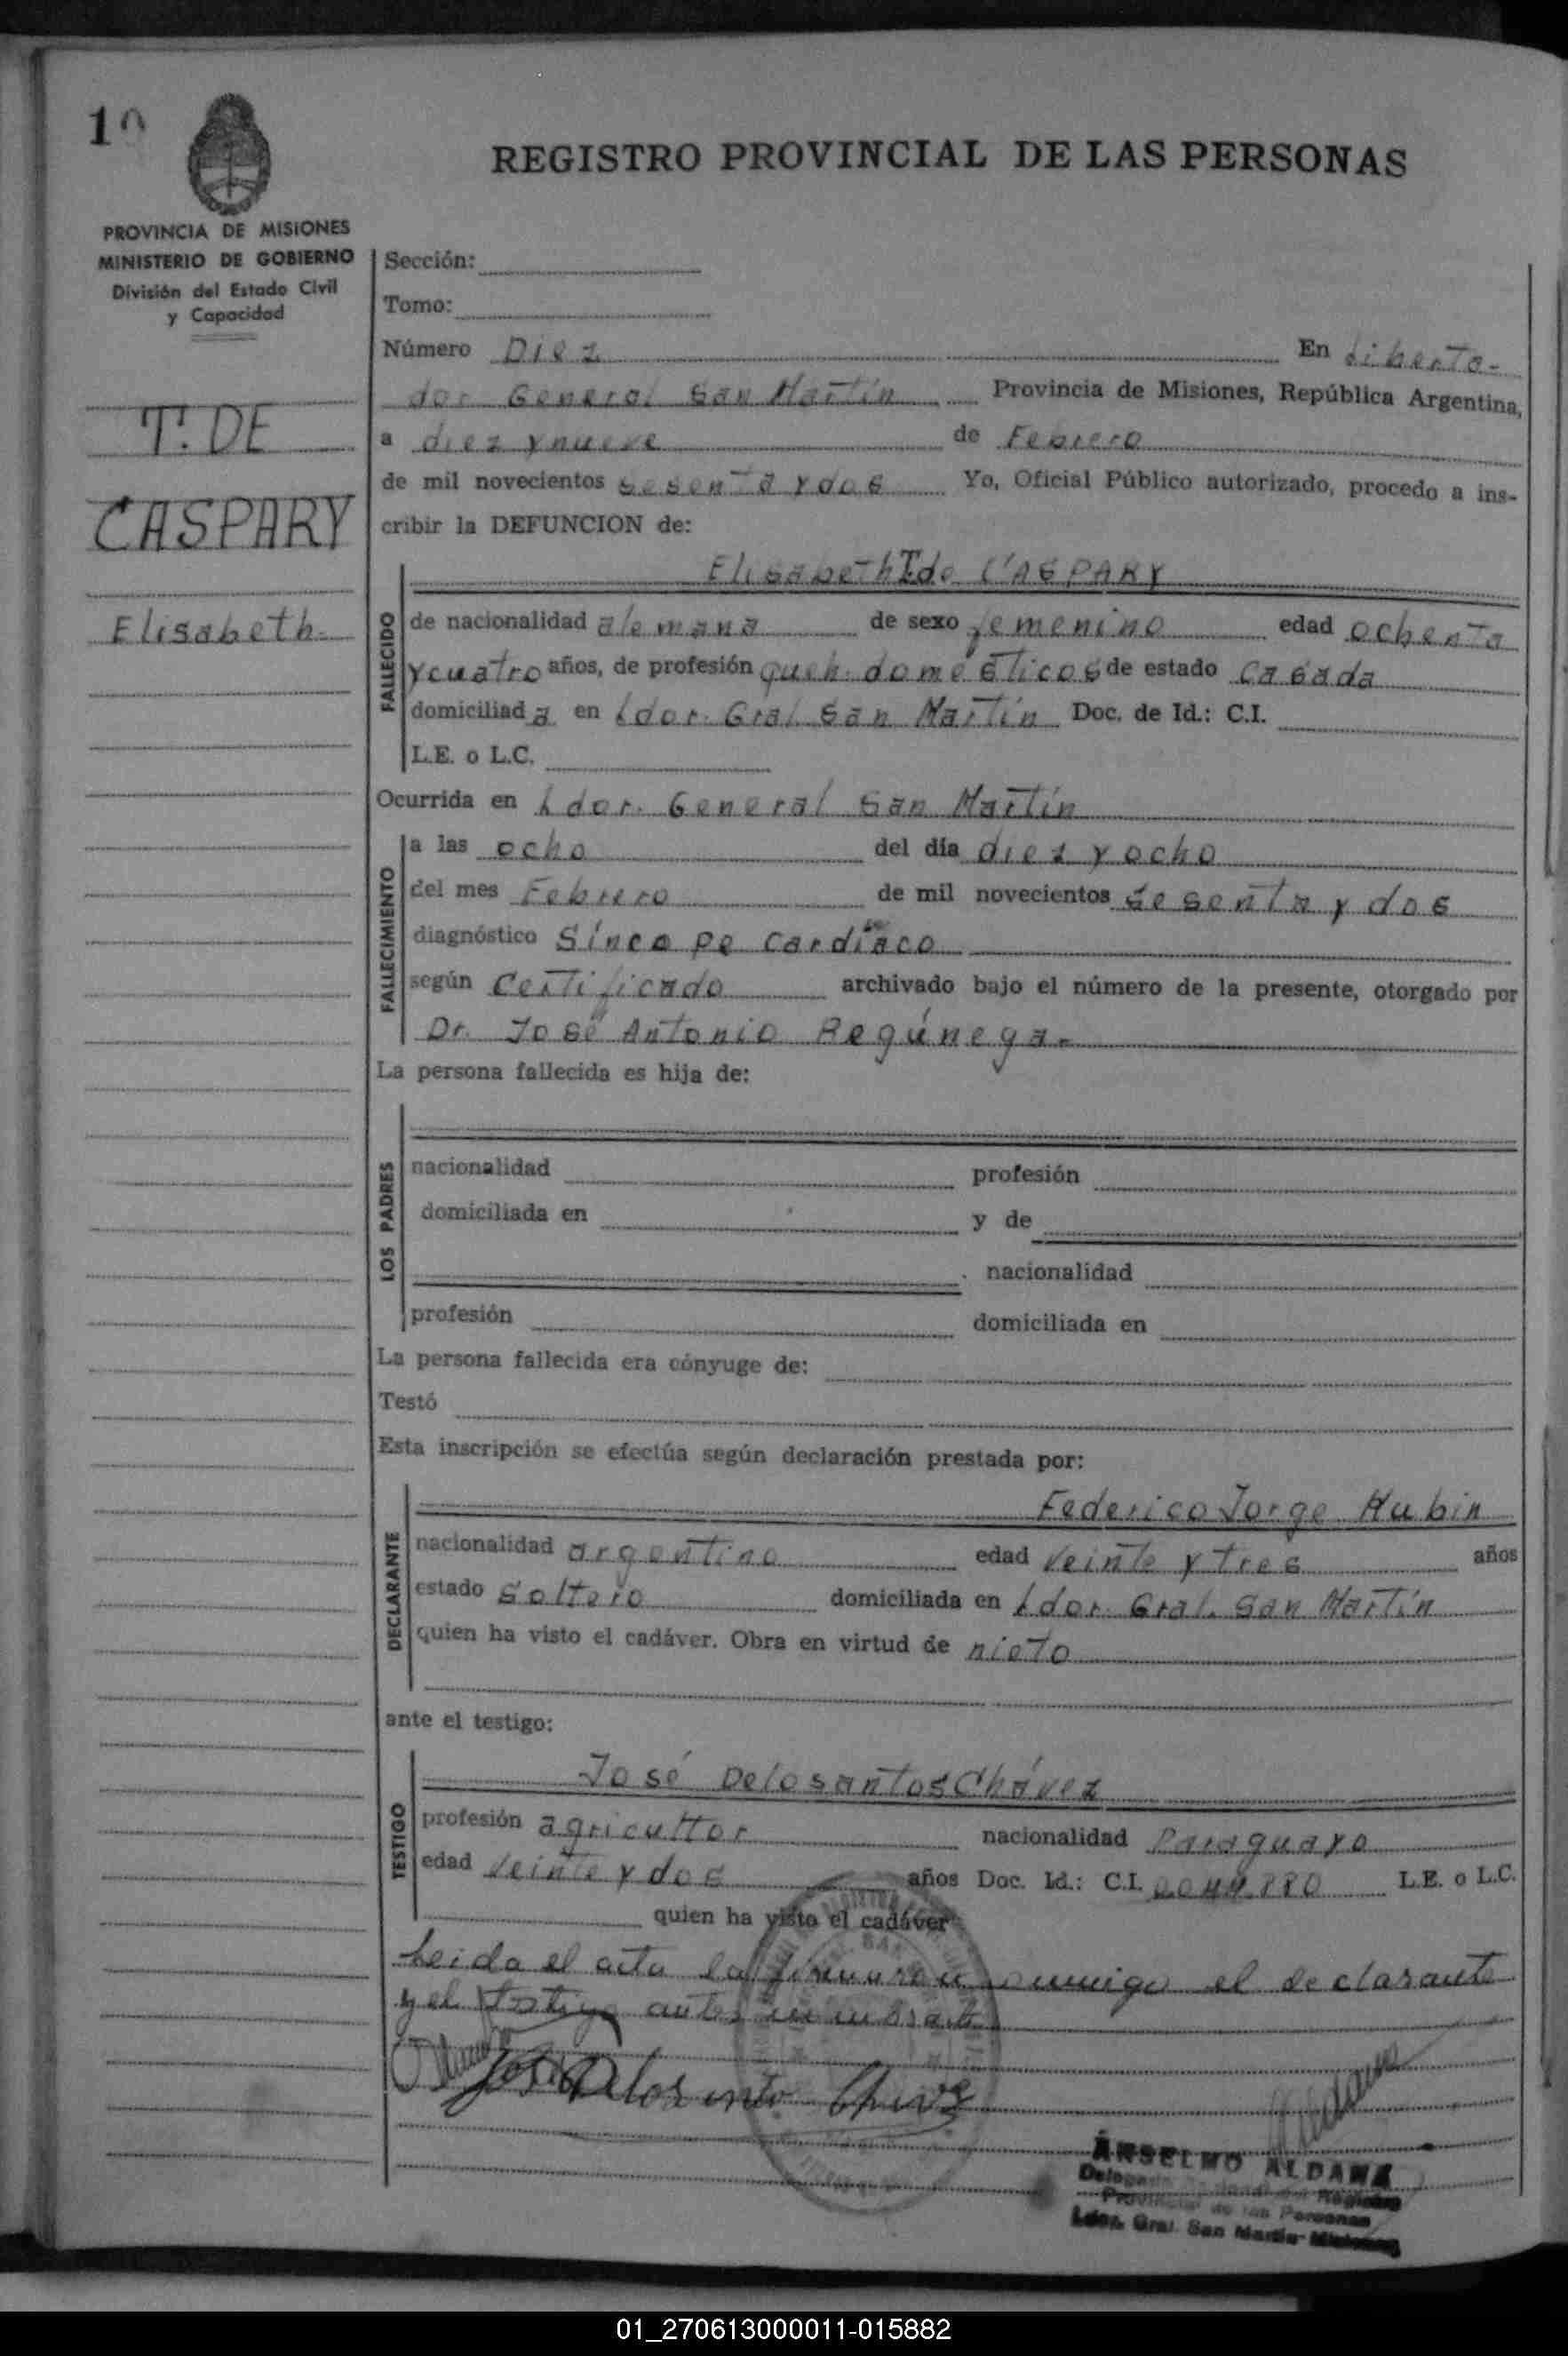 10
REGISTRO PROVINCIAL DE LAS PERSONAS
PROVINCIA DE MISIONES
MINISTERIO DE GOBIERNO
División del Estado Civil
y Capacidad
T. DE
CASPARY
Elisabeth
Sección:
Tomo:
Número Diez En Liberta-
dor General San Martín Provincia de Misiones, República Argentina,
a diez y nueve de Febrero
de mil novecientos sesenta y dos Yo, Oficial Público autorizado, procedo a ins-
cribir la DEFUNCION de:
Elisabeth T. de CASPARY
FALLECIDO
de nacionalidad alemana de sexo femenino edad ochenta
y cuatro años, de profesión queh. domésticos de estado casada
domiciliada en Ldor. Gral San Martín Doc. de Id.: C.I.
L.E. o L.C.
Ocurrida en Ldor. General San Martín
FALLECIMIENTO
a las ocho del día diez y ocho
del mes Febrero de mil novecientos sesenta y dos
diagnóstico Síncope cardíaco
según Certificado archivado bajo el número de la presente, otorgado por
Dr. José Antonio Regúnega.-
La persona fallecida es hija de:
LOS PADRES
nacionalidad profesión
domiciliada en y de
nacionalidad
profesión domiciliada en
La persona fallecida era cónyuge de:
Testó
Esta inscripción se efectúa según declaración prestada por:
DECLARANTE
Federico Jorge
nacionalidad argentino edad veinte y tres años
estado soltero domiciliada en Ldor. Gral. San Martín
quien ha visto el cadáver. Obra en virtud de nieto
ante el testigo:
TESTIGO
José Delosantos Chávez
profesión agricultor nacionalidad Paraguayo
edad veinte y dos años Doc. Id.: C.I. L.E. o L.C.
quien ha visto el cadáver
Leida el acta la firmaron conmigo el declarante
y el testigo antes
José Delosanto Chavez
ANSELMO ALDANA
Provincial de las Personas
Ldor. Gral. San Martín - Misiones
01_270613000011-015882